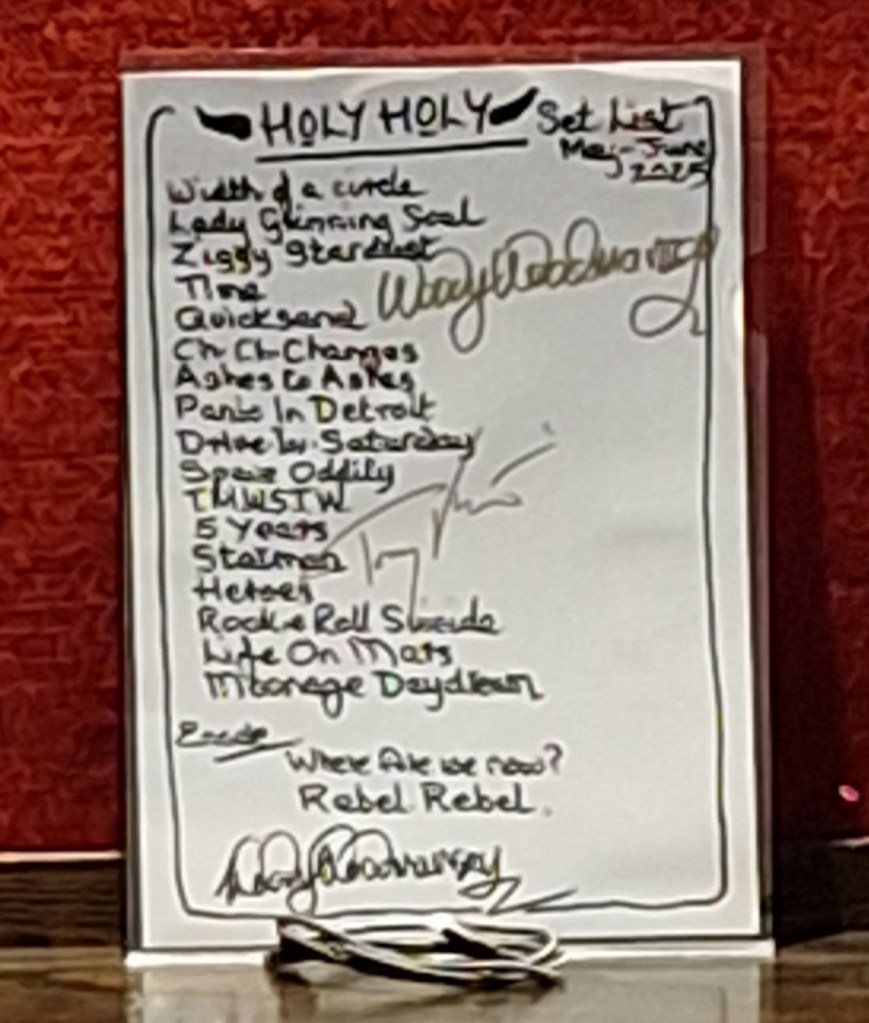 HOLY HOLY Set List
May-June
2025
Width of a circle
Lady Grinning Soul
Ziggy Stardust
Woody Woodmansey
Time
Quicksand
Ch Ch Changes
Ashes to Ashes
Panic In Detroit
Drive In Saturday
Space Oddity
TMWSTW
5 Years
Starman
Heroes
Rock n Roll Suicide
Life On Mars
Moonage Daydream
Encore
Where Are we now?
Rebel Rebel.
Woody Woodmansey